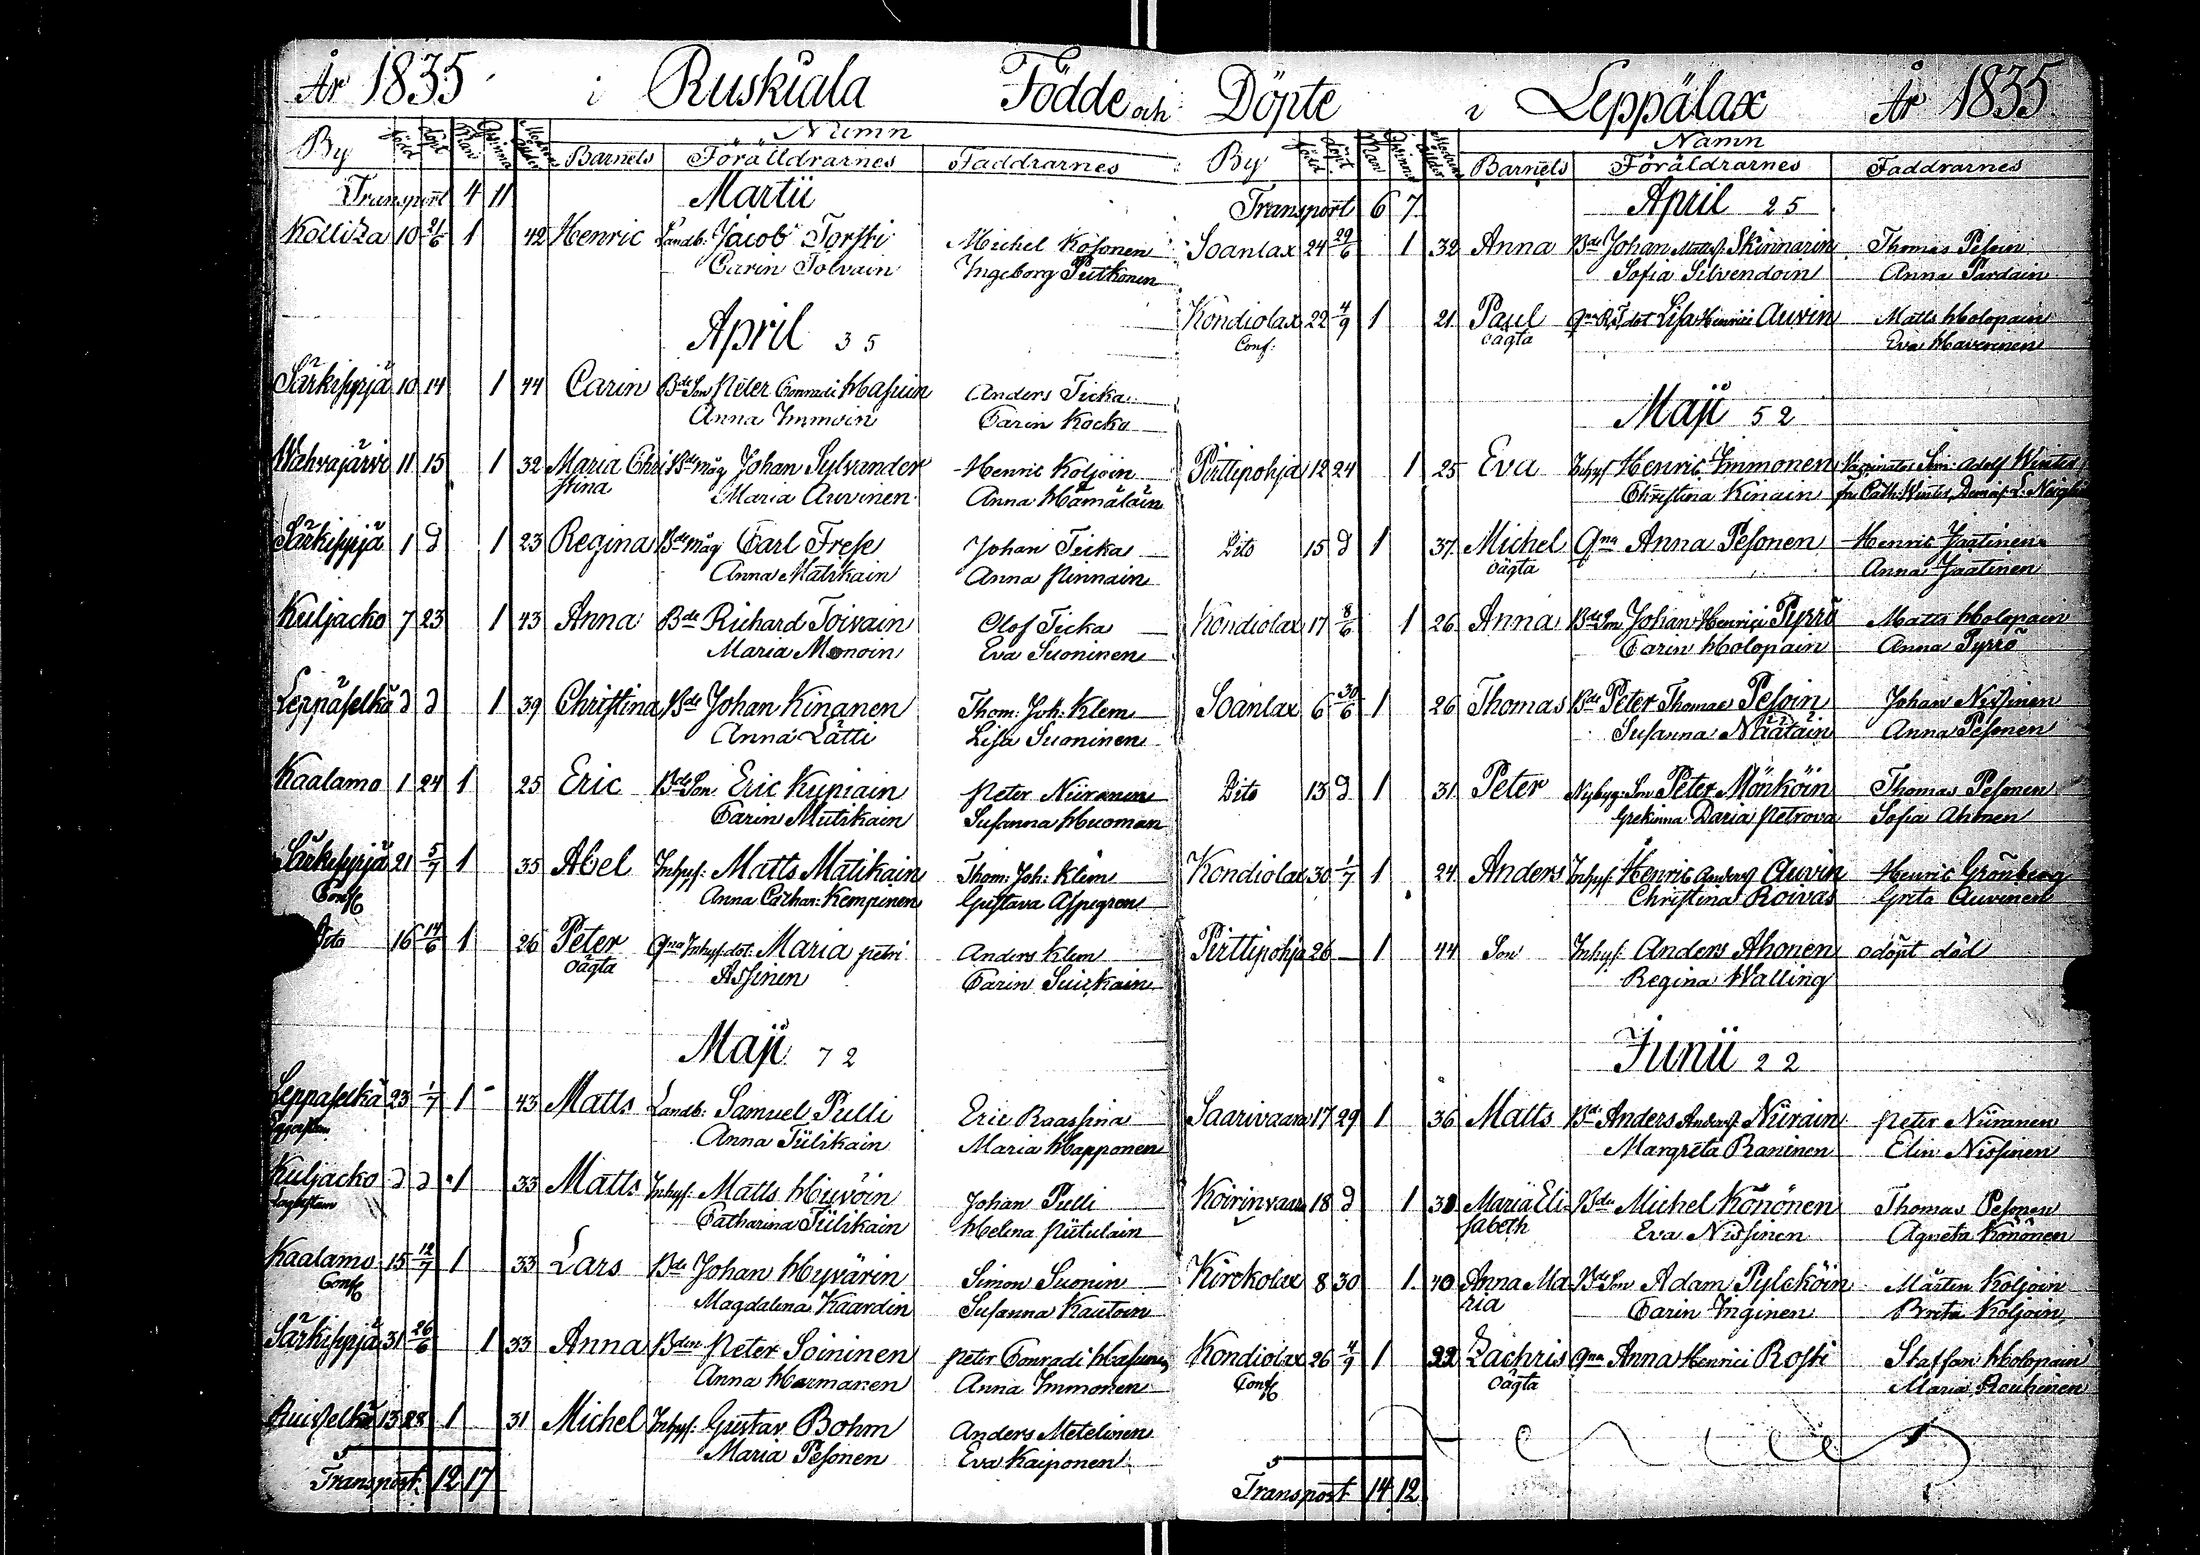 År 1835 i Ruskiala Födde och
By Född Döpt Man Qvinna Moders ålder Namn
Barnets Föräldrarnes Faddrarnes
Transport 4 11 Martii
Kolliza 10 21/6 1 42 Henric Landb: Jacob Torski Michel Kosonen
Carin Tolvain Ingeborg Putkonen
April 35
Särkisyrjä 10 14 1 44 Carin Bde Son Peter Conradi Hasuin Anders Ticka
Anna Immoin Carin Kocko
Wahvajärvi 11 15 1 32 Maria Chri Bde Måg Johan Sylvander Henric Koljoin
stina Maria Auvinen Anna Hämäläin
Särkisyrjä 1 d 1 23 Regina Bde Måg Carl Frese Johan Ticka
Anna Matskain Anna Pinnain
Kuljacko 7 23 1 43 Anna Bde Richard Toivain Olof Ticka
Maria Monoin Eva Suoninen
Leppäselkä d d 1 39 Christina Bde Johan Kinanen Thom: Joh: Klem
Anna Lätti Lisa Suoninen
Kaalamo 1 24 1 25 Eric Bde Son Eric Kupiain Peter Niiranen
Carin Mutskain Susanna Huoman
Särkisyrjä 21 5/7 1 35 Abel Inhys: Matts Matikain Thom: Joh: Klem
Conf Anna Cathar: Kempinen Gustava Aspegren
Dito 16 14/6 1 26 Peter Qna Inhys. dot: Maria Petri Anders Klem
oägta Assinen Carin Suikkain
Maji 72
Leppäselkä 23 1/7 1 43 Matts Landb: Samuel Pulli Eric Raassina
Anna Tiilikain Maria Happonen
Kuljacko d d 1 33 Matts Inhys. Matts Huvöin Johan Pulli
Catharina Tiilikain Helena Piitulain
Kaalamo 15 12/7 1 33 Lars Bde Johan Hyvärin Simon Suonin
Conf Magdalena Kaardin Susanna Kautoin
Särkisyrjä 31 26/6 1 33 Anna Bden Peter Soininen Peter Conradi Hasuinen
Anna Harmanen Anna Immonen
Ruisselkä 13 28 1 31 Michel Inhys. Gustav Bohm Anders Metelinen
Maria Pesonen Eva Kaiponen
Transport. 12 17
Döpte i Leppälax År 1835
By Född Döpt Man Qvinna Moders ålder Namn
Barnets Föräldrarnes Faddrarnes
Transport 6 7 April 25
Soanlax 24 29/6 1 32 Anna Bde Johan Mattss. Skinnarin Thomas Pesoin
Sofia Silvendoin Anna Pardain
Kondiolax 22 4/9 1 21 Paul Qna Lisa Henrici Auvin Matts Holopain
Conf. oägta Eva Havennen
Maji 52
Pirttipohja 12 24 1 25 Eva Inhys Henric Immonen Vaccinator Adolf Winter
Christina Kinain fru Cath: Winter,
Dito 15 d 1 37 Michel Qna Anna Pesonen Henric Jaatinen
oägta Anna Jaatinen
Kondiolax 17 8/6 1 26 Anna Bde Son Johan Henrici Pyrrö Matts Holopain
Carin Holopain Anna Pyrrö
Soanlax 6 30/6 1 26 Thomas Bde Peter Thomae Pesoin Johan Nissinen
Susanna Näätäin Anna Pesonen
Dito 13 d 1 31 Peter Nybyg: Son Peter Mönköin Thomas Pesonen
Grekinna Daria Petrova Sofia Ahonen
Kondiolax 30 1/7 1 24 Anders Inhys. Henric Anderss Auvin Henric Grönberg
Christina Roivas Greta Auvinen
Pirttipohja 26 — 1 44 Son Inhys. Anders Ahonen odöpt död
Regina Walling
Junii 22
Saarivaara 17 29 1 36 Matts Bde Anders Anderss. Niirain Peter Niiranen
Margreta Raninen Elin Nissinen
Koirinvaara 18 d 1 38 Maria Eli- Bde Michel Könönen Thomas Pesonen
sabeth Eva Nissinen Agneta Könönen
Kirckolax 8 30 1 40 Anna Ma Bde Son Adam Pylcköin Mårten Koljoin
ria Carin Inginen Brita Koljoin
Kondiolax 26 4/9 1 22 Zachris Qna Anna Henrici Rosti Staffan Holopain
Conf oägta Maria Rouhinen
Transport 14 12